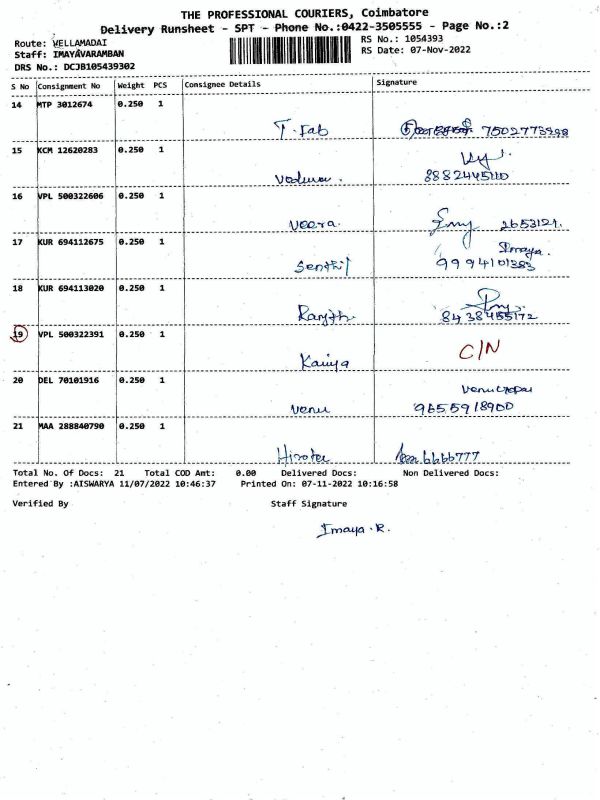 THE PROFESSIONAL COURIERS, Coimbatore
Delivery Runsheet - SPT - Phone No.:0422-3505555 - Page No.:2
Route: VELLAMADAI
RS No.: 1054393
Staff: IMAYAVARAMBAN
RS Date: 07-Nov-2022
DRS No.: DCJB105439302
S No Consignment No Weight PCS Consignee Details Signature
14 MTP 3012674 0.250 1
T. Fab 7502773998
15 KCM 12620283 0.250 1
8882445110
16 VPL 500322606 0.250 1
Veera. 2653121.
17 KUR 694112675 0.250 1
Imaya.
Senthil 9994101383
18 KUR 694113020 0.250 1
Ranjth. 8438455172
19 VPL 500322391 0.250 1
C/N
Kaviya
20 DEL 70101916 0.250 1
Venugopal
Venu 9655918900
21 MAA 288840790 0.250 1
6666777
Total No. Of Docs: 21 Total COD Amt: 0.00 Delivered Docs: Non Delivered Docs:
Entered By :AISWARYA 11/07/2022 10:46:37 Printed On: 07-11-2022 10:16:58
Verified By Staff Signature
Imaya.R.